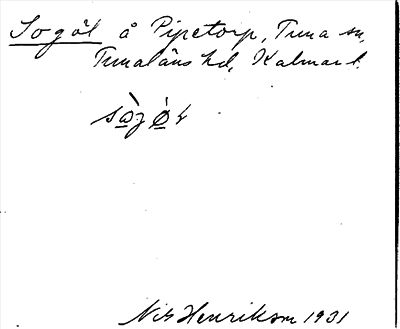 Sogöl å Pipetorp, Tuna sn,
Tunaläns hd, Kalmar l.
Nils Henrikson 1931